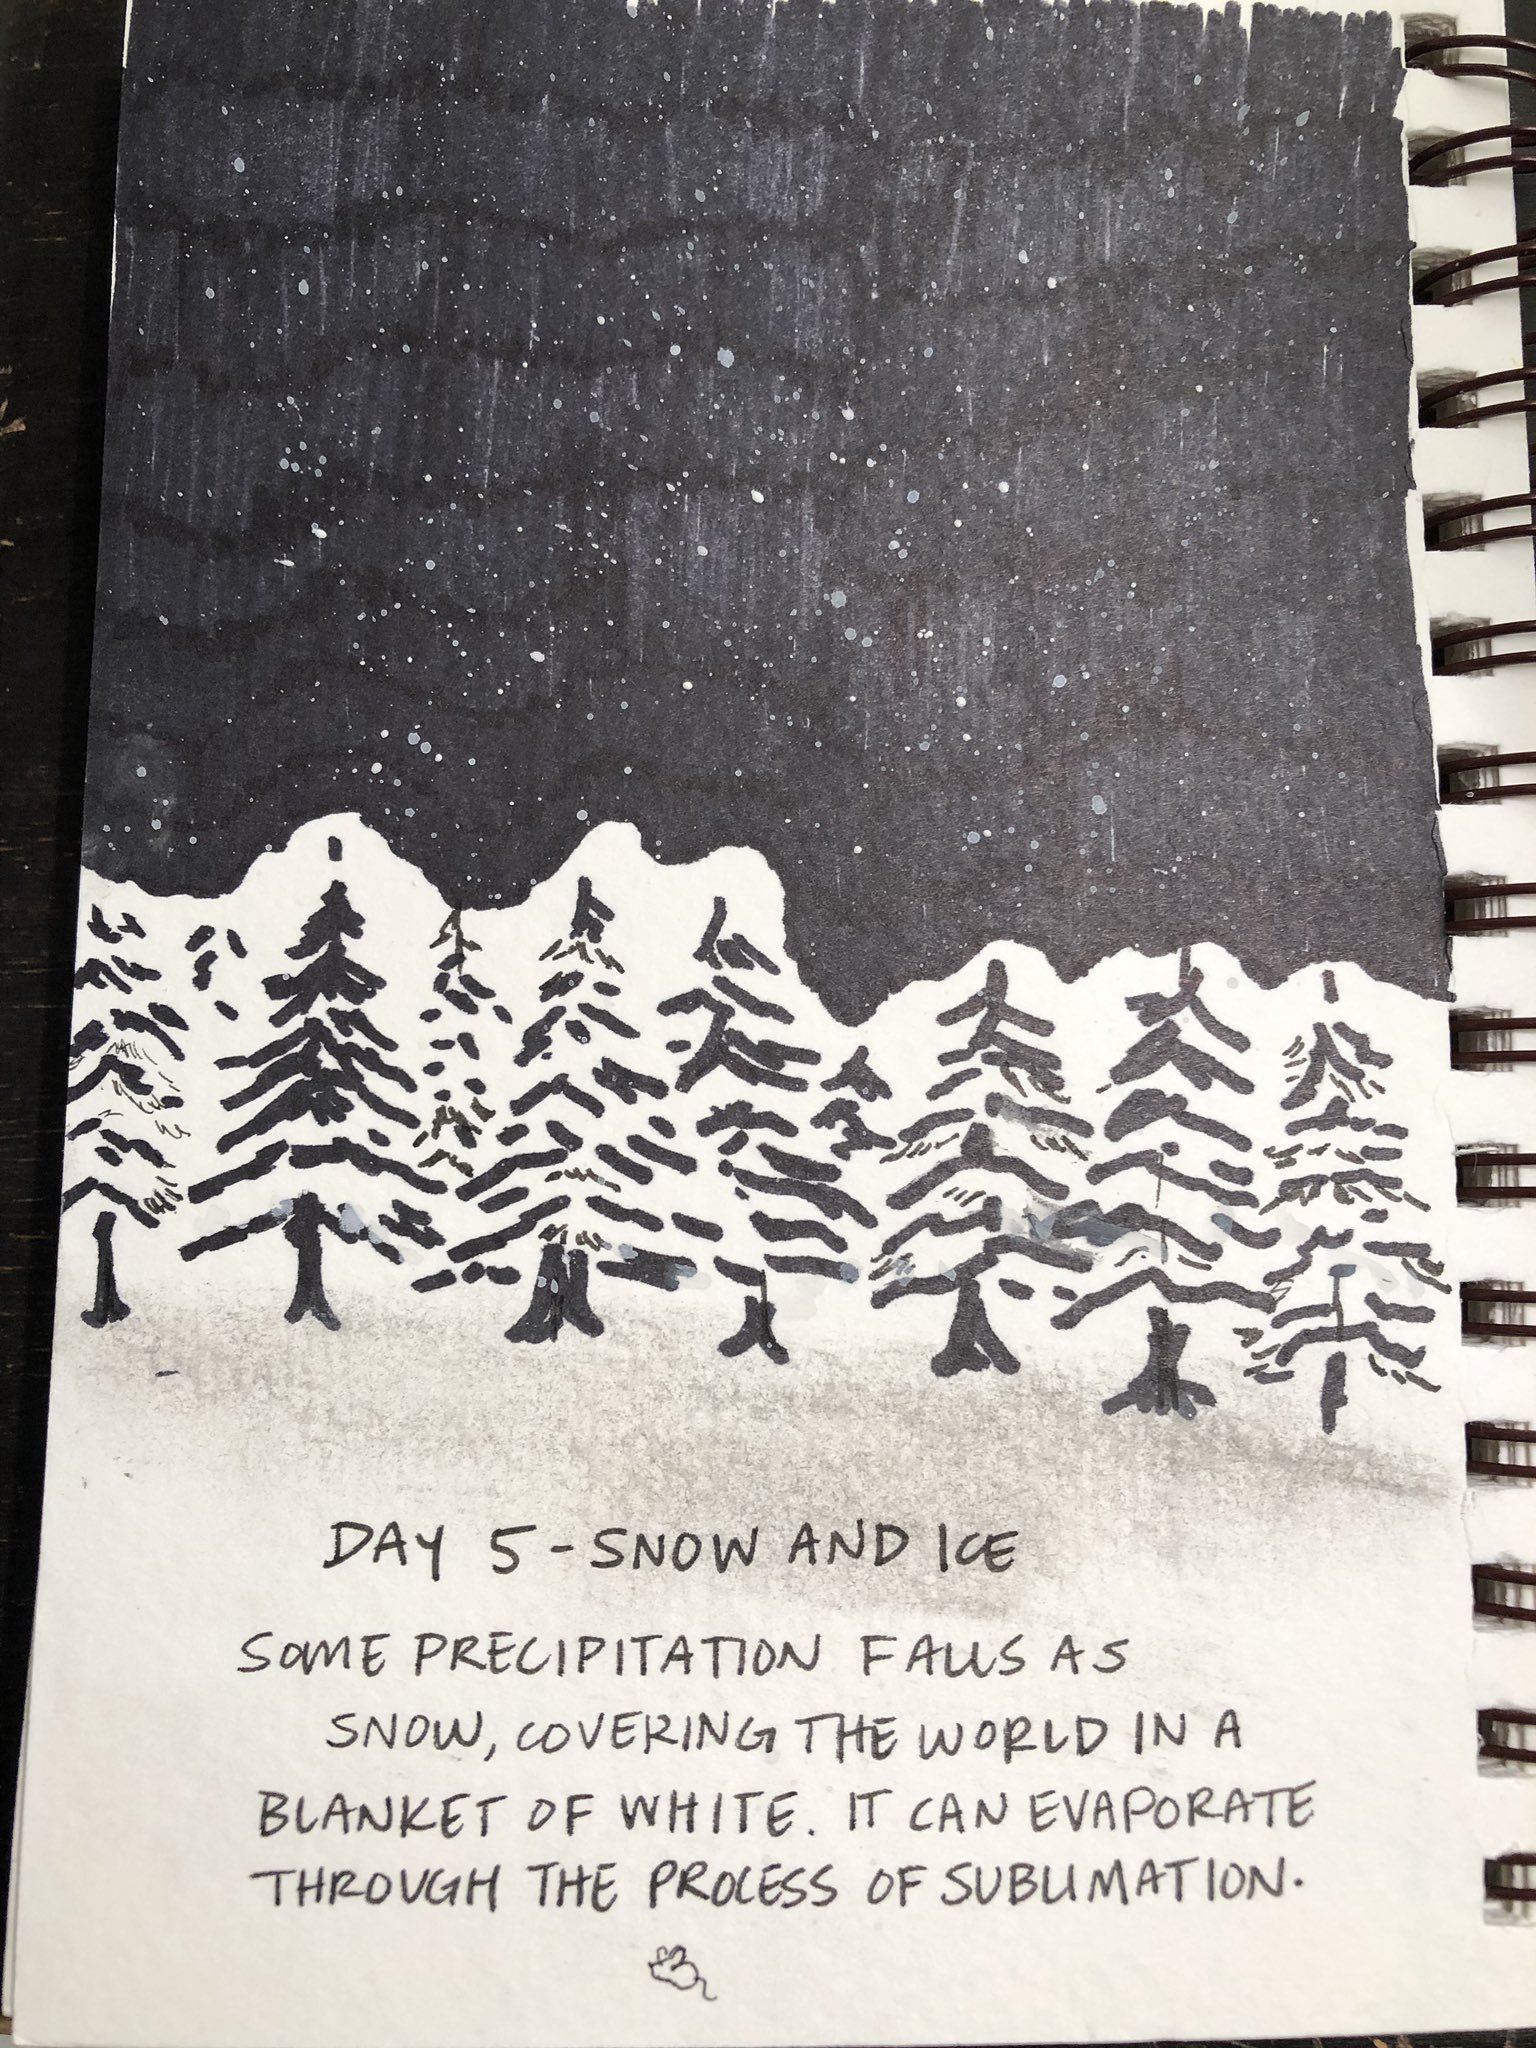 DAY 5 - SNOW AND ICE
SOME PRECIPITATION FALLS AS
SNOW, COVERING THE WORLD IN A
BLANKET OF WHITE. IT CAN EVAPORATE
THROUGH THE PROCESS OF SUBLIMATION.